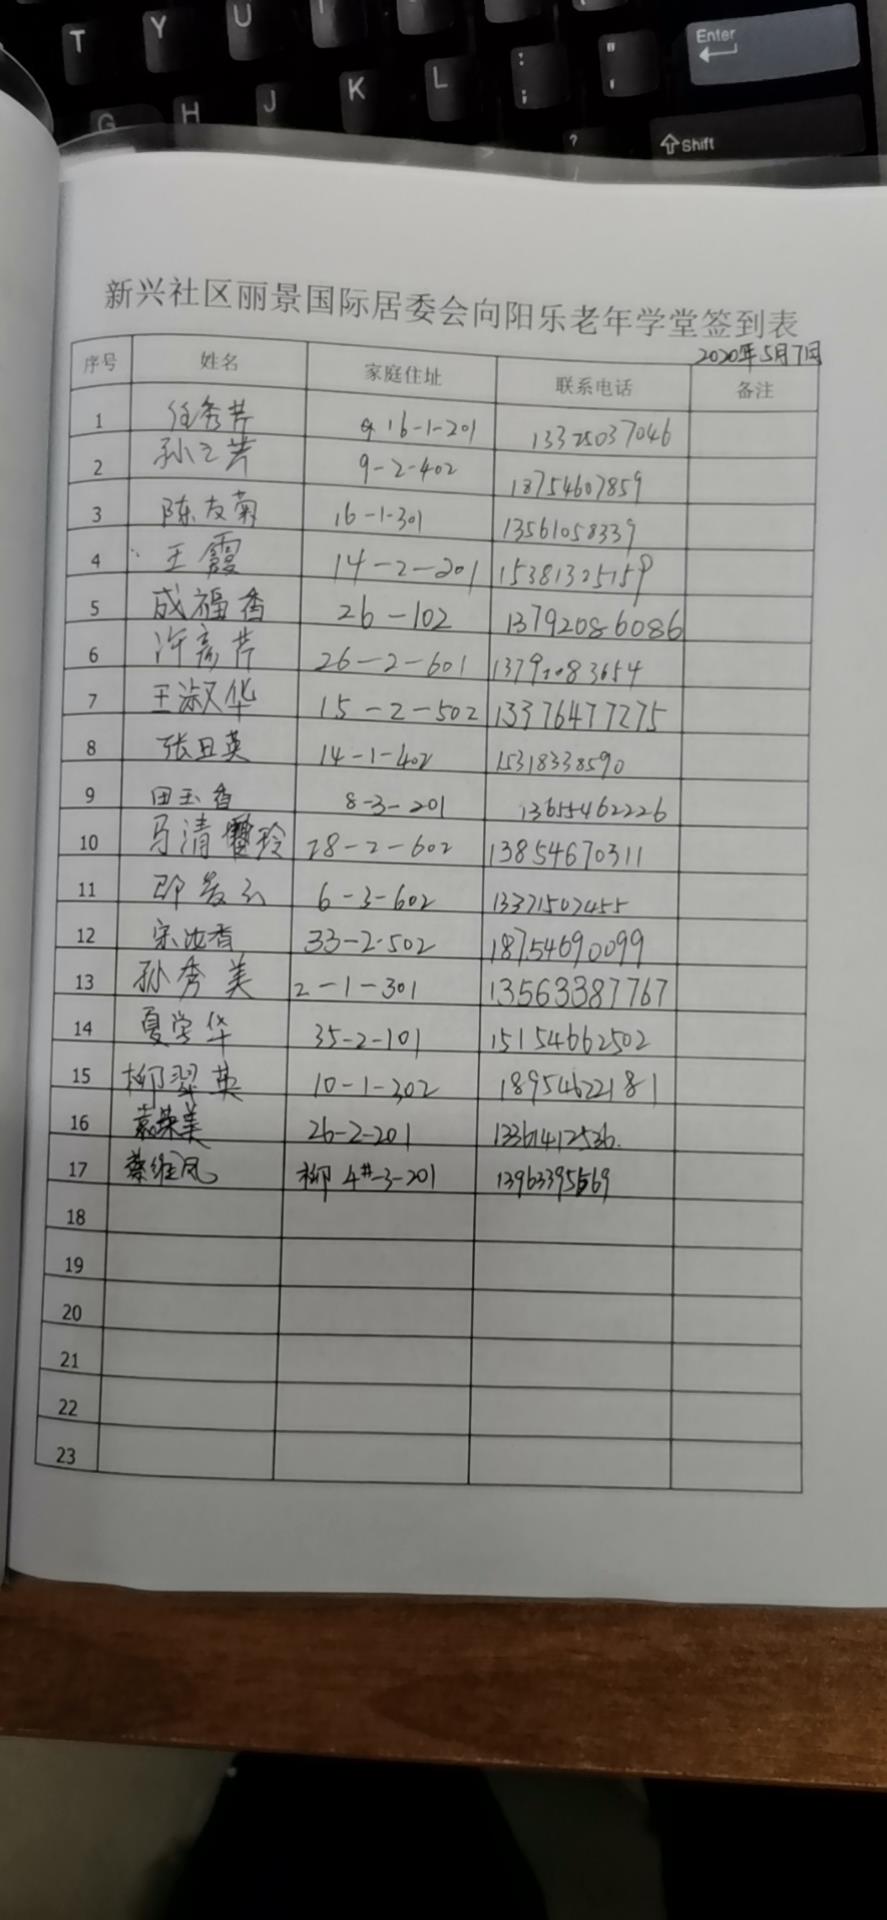 T Y U I
Enter
G H J K L : ; " '
? Shift
新兴社区丽景国际居委会向阳乐老年学堂签到表
2020年5月7日
序号 姓名 家庭住址 联系电话 备注
1 任秀芹 16-1-201 13325037046
2 孙之芳 9-2-402 18754607859
3 陈友菊 16-1-301 13561058339
4 王霞 14-2-201 15381325159
5 成福香 26-102 13792086086
6 许彦芹 26-2-601 13792083654
7 王淑华 15-2-502 13376477275
8 张日英 14-1-402 15318338590
9 田玉香 8-3-201 13655462226
10 马清玲 28-2-602 13854670311
11 6-3-602 13371507455
12 宋香 33-2-502 18754690099
13 孙秀美 2-1-301 13563387767
14 夏学华 35-2-101 15154662502
15 柳翠英 10-1-302 18954622181
16 袁荣美 26-2-201 13361412536
17 蔡维凤 柳4#-3-201 13963395569
18
19
20
21
22
23